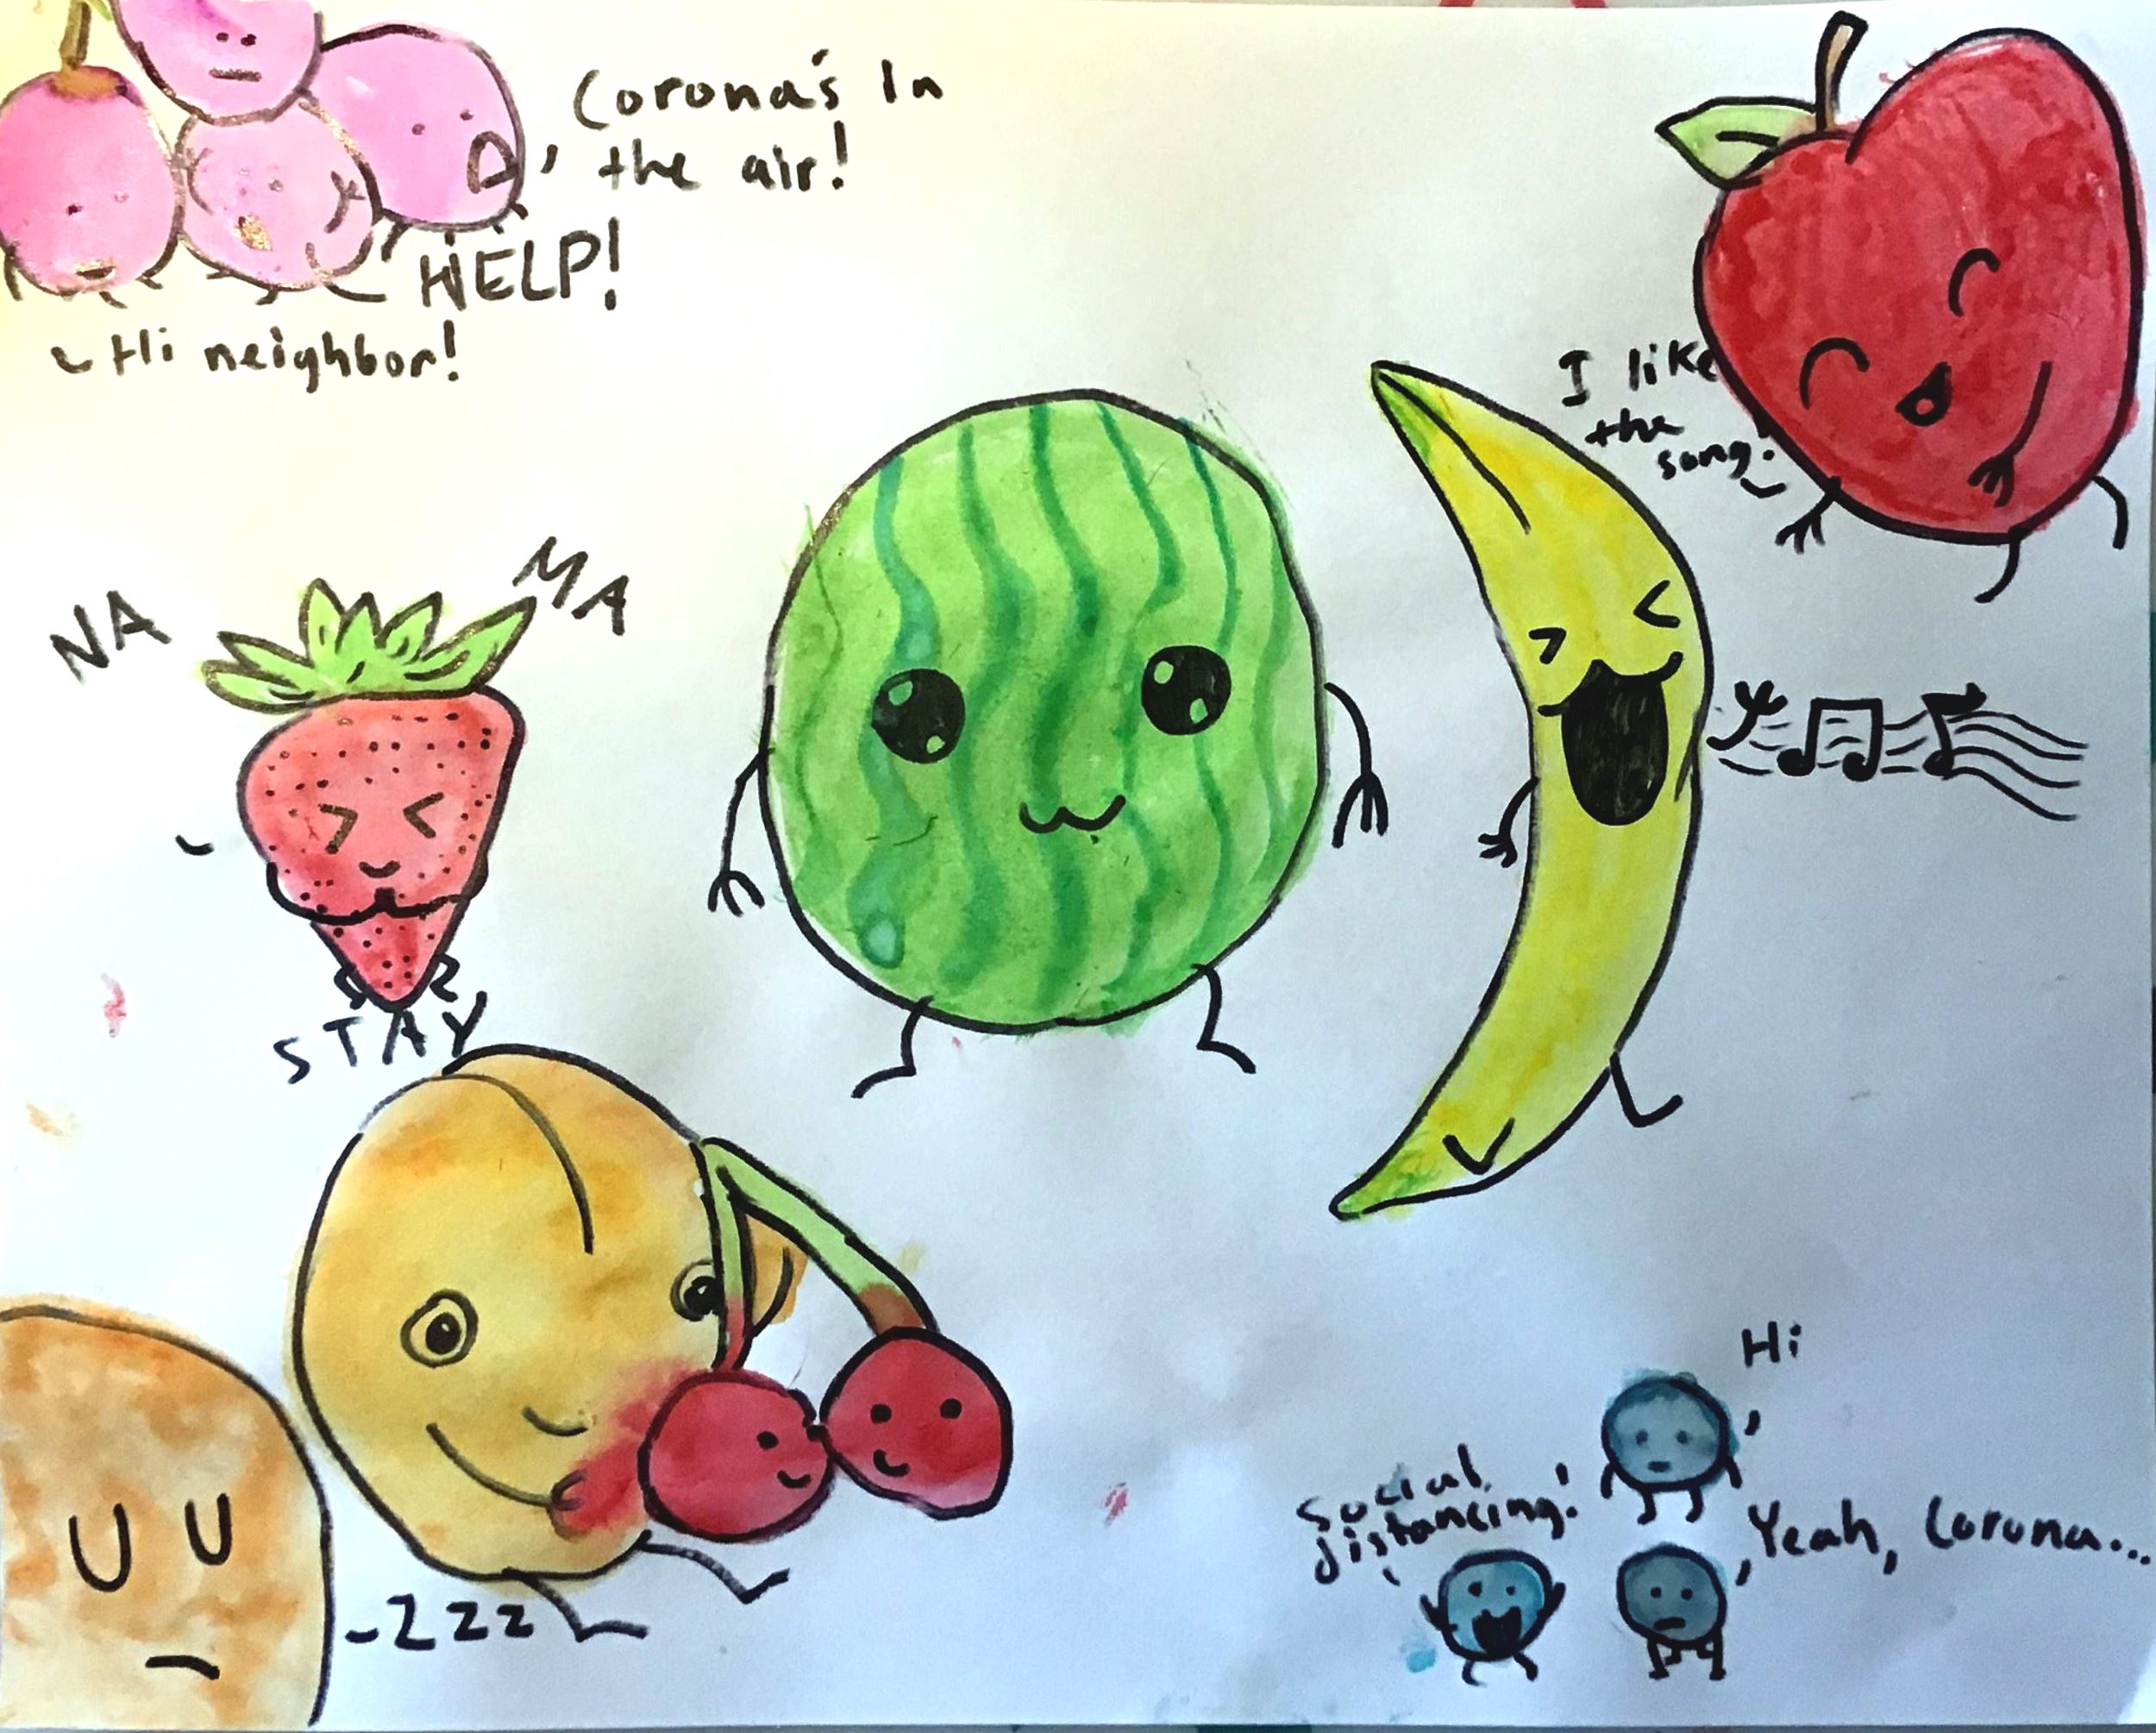 Corona's In
the air!
HELP!
Hi neighbor!
I like
the
song!
NA MA
STAY
-Zzz
Hi
Social
distancing!
Yeah, Corona...